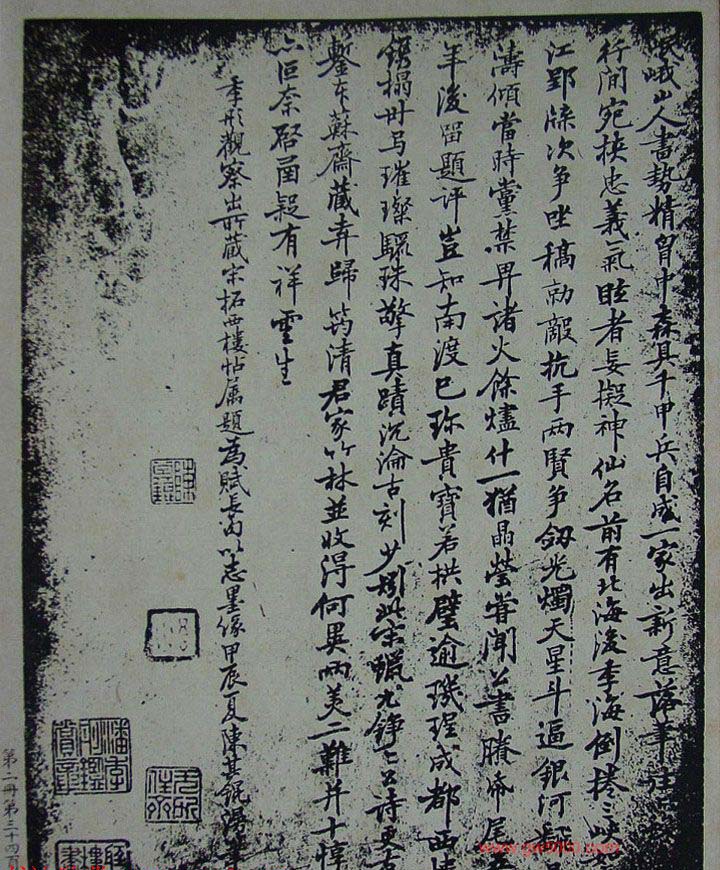 岷峨山人書勢精胷中森具千甲兵自成一家出新意落筆
行間宛挾忠義氣眩者妄擬神仙名前有北海後季海倒捲三峽
江郢牒次爭坐稿勍敵抗手兩賢爭劒光燭天星斗逼銀河
濤傾當時黨禁畀諸火餘燼什一猶晶瑩嘗聞公書賸希尾
年後留題評豈知南渡已珍貴寶若拱璧逾璣珵成都西樓
鐫搨册与璀璨驪珠擎真蹟沉淪古刻少矧此宋蠟尤錚〻公詩更
鏨本蘇齋藏弆歸筠清君家竹林並收得何異兩美二難并十
六叵奈啓函疑有祥雲生
季彤觀察出所藏宋拓西樓帖属題為賦長句以志墨緣甲辰夏陳其錕
潘季彤鑑賞章
第二冊第三十四頁